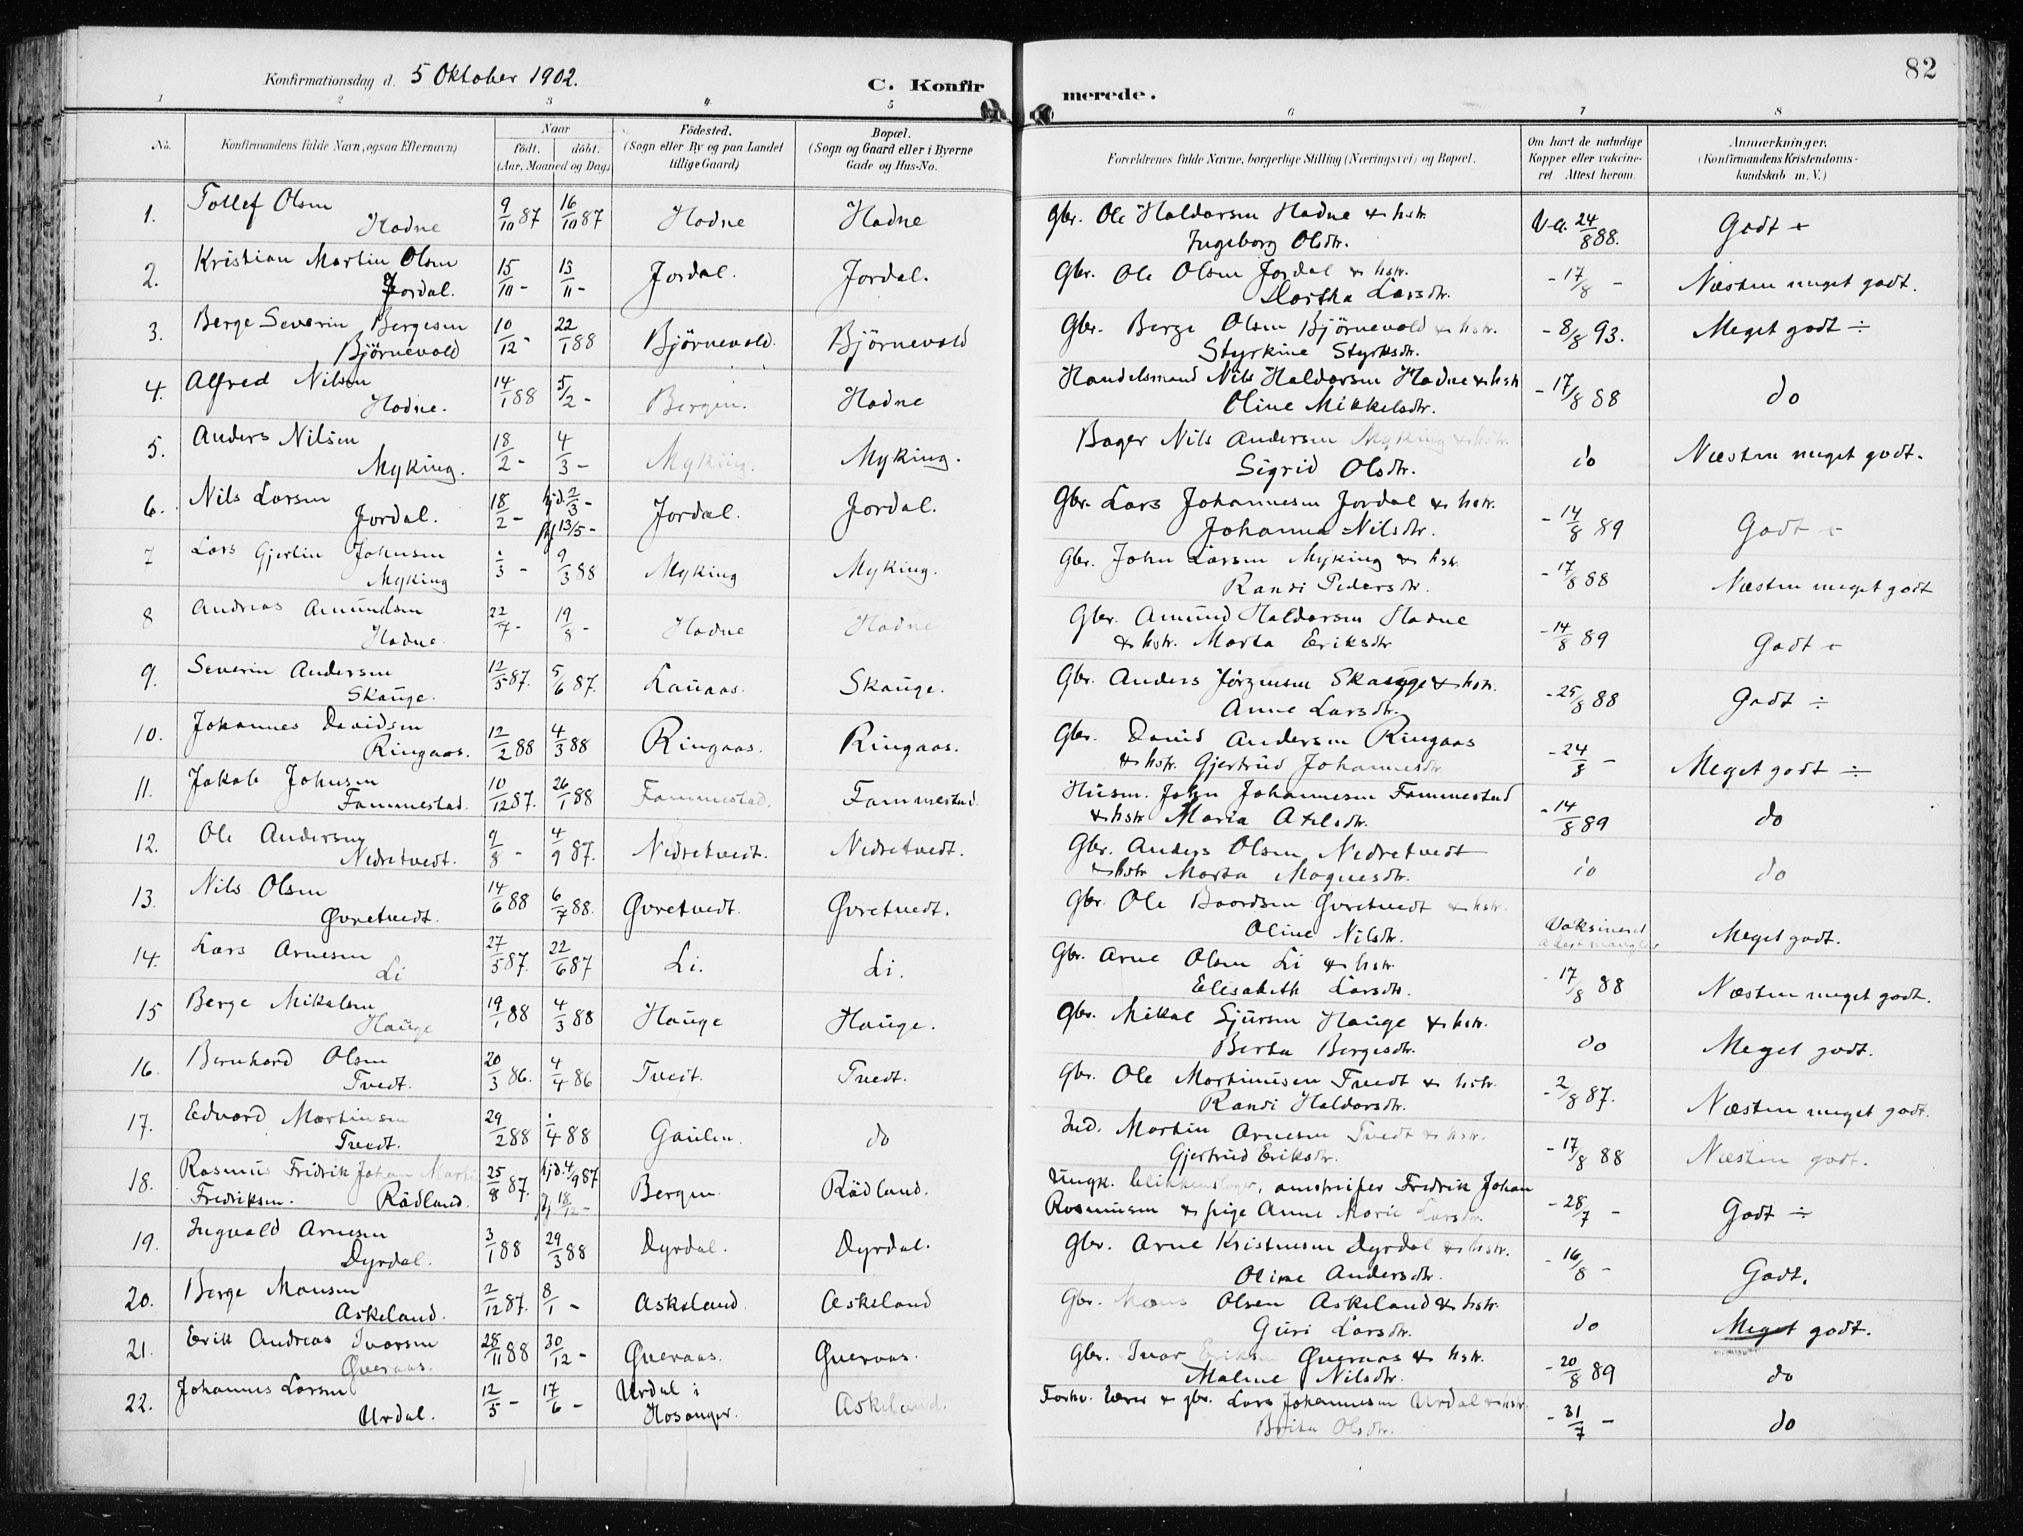 82
Konfirmationsdag d. 5 Oktober 1902.
C. Konfir
merede.
1 2 3 4 5 6 7 8
No.
Konfirmandens fulde Navn, ogsaa Efternavn)
Naar
födt. döbt.
(Aar, Maaned og Dag)
Födested.
(Sogn eller By og paa Landet
tillige Gaard)
Bopæl.
(Sogn og Gaard eller i Byerne
Gade og Hus-No.
Forældrenes fulde Navne, borgerlige Stilling (Næringsvei) og Bopæl.
Om havt de naturlige
Kopper eller vakcine-
ret Attest herom.
Anmærkninger.
(Konfirmandens Kristendoms-
kundskab m. V.)
1. Tollef Olsen
Hodne 9/10 87 16/10 87 Hodne Hodne Gbr. Ole Haldorsen Hodne & hstr.
Ingeborg Olsdtr. Va. 24/8 88. Godt +
2. Kristian Martin Olsen
Jordal. 15/10 - 13/11 - Jordal. Jordal. Gbr. Ole Olsen Jordal & hstr.
Martha Larsdtr. - 17/8 - Næsten meget godt.
3. Berge Severin Bergesen
Björnevold 10/12 - 22/1 88 Björnevold. Björnevold Gbr. Berge Olsen Björnevold & hstr.
Styrkine Styrksdtr. - 8/8 93. Meget godt ÷
4. Alfred Nilsen
Hodne. 14/1 88 5/2 - Bergen. Hodne Handelsmand Nils Haldorsen Hodne & hstr
Oline Mikkelsdtr. - 17/8 88 do
5. Anders Nilsen
Myking. 18/2 - 4/3 - Myking. Myking. Bager Nils Andersen Myking & hstr.
Sigrid Olsdtr. do Næsten meget godt.
6. Nils Larsen
Jordal. 18/2 - hjd. 2/3 - 13/5 - Jordal. Jordal. Gbr. Lars Johannesen Jordal & hstr.
Johanna Nilsdtr. - 14/8 89 Godt +
7 Lars Gjertin Johnsen
Myking /3 - 9/3 88 Myking Myking. Gbr. John Larsen Myking & hstr.
Randi Pedersdtr. - 17/8 88 Næsten meget godt
8 Andreas Amundsen
Hodne. 22/7 - 19/8 - Hodne Hodne Gbr. Amund Haldorsen Hodne
& hstr. Marta Eriksdtr - 14/8 89 Godt ÷
9. Severin Andersen
Skauge. 12/5 87. 5/6 87. Lauaas. Skauge. Gbr. Anders Jörgensen Skauge & hstr.
Anne Larsdtr. - 25/8 88 Godt ÷
10. Johannes Davidsen
Ringaas. 12/2 88 4/3 88 Ringaas. Ringaas. Gbr. David Andersen Ringaas
& hstr. Gjertrud Johannesdtr - 24/8 - Meget godt ÷
11. Jakob Johnsen
Fammestad. 10/12 87. 26/1 88 Fammestad. Fammestad. Husm. John Johannesen Fammestad
& hstr Maria Axelsdtr. - 14/8 89 do
12. Ole Andersen
Nedretvedt. 9/8 - 4/9 87. Nedretvedt. Nedretvedt. Gbr. Anders Olsen Nedretvedt
& hstr Marta Magnesdtr. do do
13. Nils Olsen
Øvretvedt. 14/6 88 6/7 88. Øvretvedt. Øvretvedt. Gbr. Ole Baardsen Øvretvedt & hstr.
Oline Nilsdtr. Vaksineret
attest mangler Meget godt.
14. Lars Arnesen
Li 27/5 87. 22/6 87 Li. Li. Gbr. Arne Olsen Li & hstr.
Elisabeth Larsdtr. - 17/8 88 Næsten meget godt.
15 Berge Mikalsen
Hauge 19/1 88 4/3 88 Hauge Hauge. Gbr. Mikal Sjursen Hauge & hstr.
Berta Bergesdtr. do Meget godt.
16. Bernhard Olsen
Tvedt. 20/3 86. 4/4 86 Tvedt. Tvedt. Gbr. Ole Martinusen Tvedt & hstr.
Randi Haldorsdtr. - 2/8 87. Næsten meget godt.
17. Edvard Martinsen
Tvedt. 29/2 88 /4 88 Gaulen. do Ind. Martin Arnesen Tvedt & hstr.
Gjertrud Eriksdtr. - 17/8 88 Næsten godt.
18. Rasmus Fridrik Johan Martin
Fredriksen. Rödland. 25/8 87. hjd. 4/9 87 18/12 - Bergen Rödland. Ungk. blikkenslager, Fredrik Johan
Rasmusen & pige Anne Marie Larsdtr. - 28/7 - Godt ÷
19. Ingvald Arnesen
Dyrdal. 3/1 88 29/3 88 Dyrdal. Dyrdal. Gbr. Arne Kristensen Dyrdal & hstr.
Oline Andersdtr. - 16/8 - Godt.
20. Berge Monsen
Askeland. 2/12 87. 8/1 - Askeland. Askeland Gbr. Mons Olsen Askeland & hstr.
Guri Larsdtr. do Meget godt.
21. Erik Andreas Ivarsen
Øveraas. 28/11 88 30/12 - Øveraas. Øveraas. Gbr. Ivar Eriksen Øveraas & hstr.
Malene Nilsdtr. - 20/8 89 do
22. Johannes Larsen
Urdal. 12/5 - 17/6 - Urdal i
Hosanger. Askeland. Forhv. lærer & gbr. Lars Johannesen Urdal & hstr.
Brita Olsdtr. - 31/7 - do